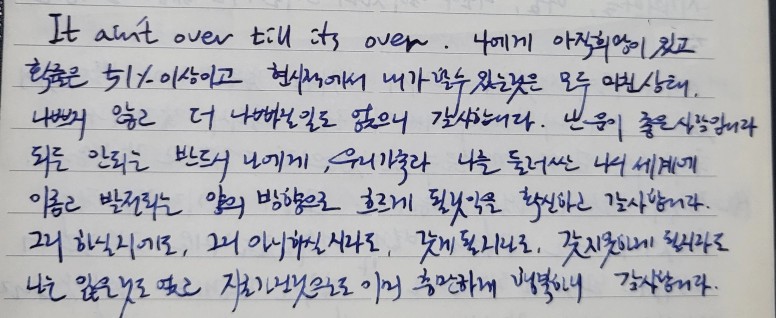 It ain't over till its over. 나에게 아직희망이 있고
확률은 51% 이상이고 현시점에서 내가 할수 있는것은 모두 마친상태.
나쁘지 않고 더 나빠질일도 없으니 감사합니다. 난 운이 좋은사람입니다
되든 안되든 반드시 나에게, 우리가족과 나를 둘러싼 나의 세계에
이롭고 발전되는 양의 방향으로 흐르게 될것임을 확신하고 감사합니다.
그리 하실지라도, 그리 아니하실지라도, 갖게될지라도, 갖지못하게 될지라도
나는 잃을것도 없고 지로 이미 충만하게 행복하니 감사합니다.